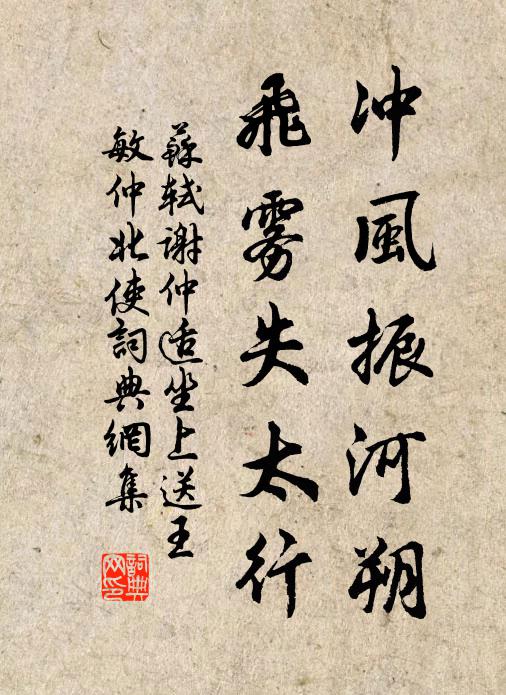 冲風振河朔
飛霧失太行
蘇軾謝仲适坐上送王
敏仲北使詞典網集
詞典
网印